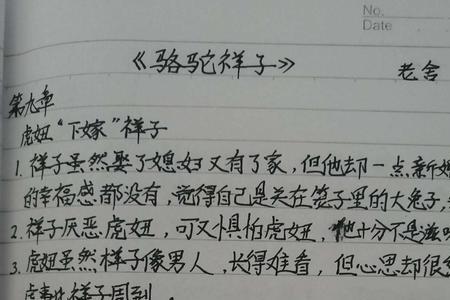 No.
Date
《骆驼祥子》 老舍
第九章
虎妞"下嫁"祥子
1. 祥子虽然娶了媳妇又有了家，但他却一点新
的幸福感都没有，觉得自己是关在笼子里的大兔子，
2. 祥子厌恶虎妞，可又惧怕虎妞，他十分不是滋
3. 虎妞虽然样子像男人，长得难看，但心思却很
祥子周到